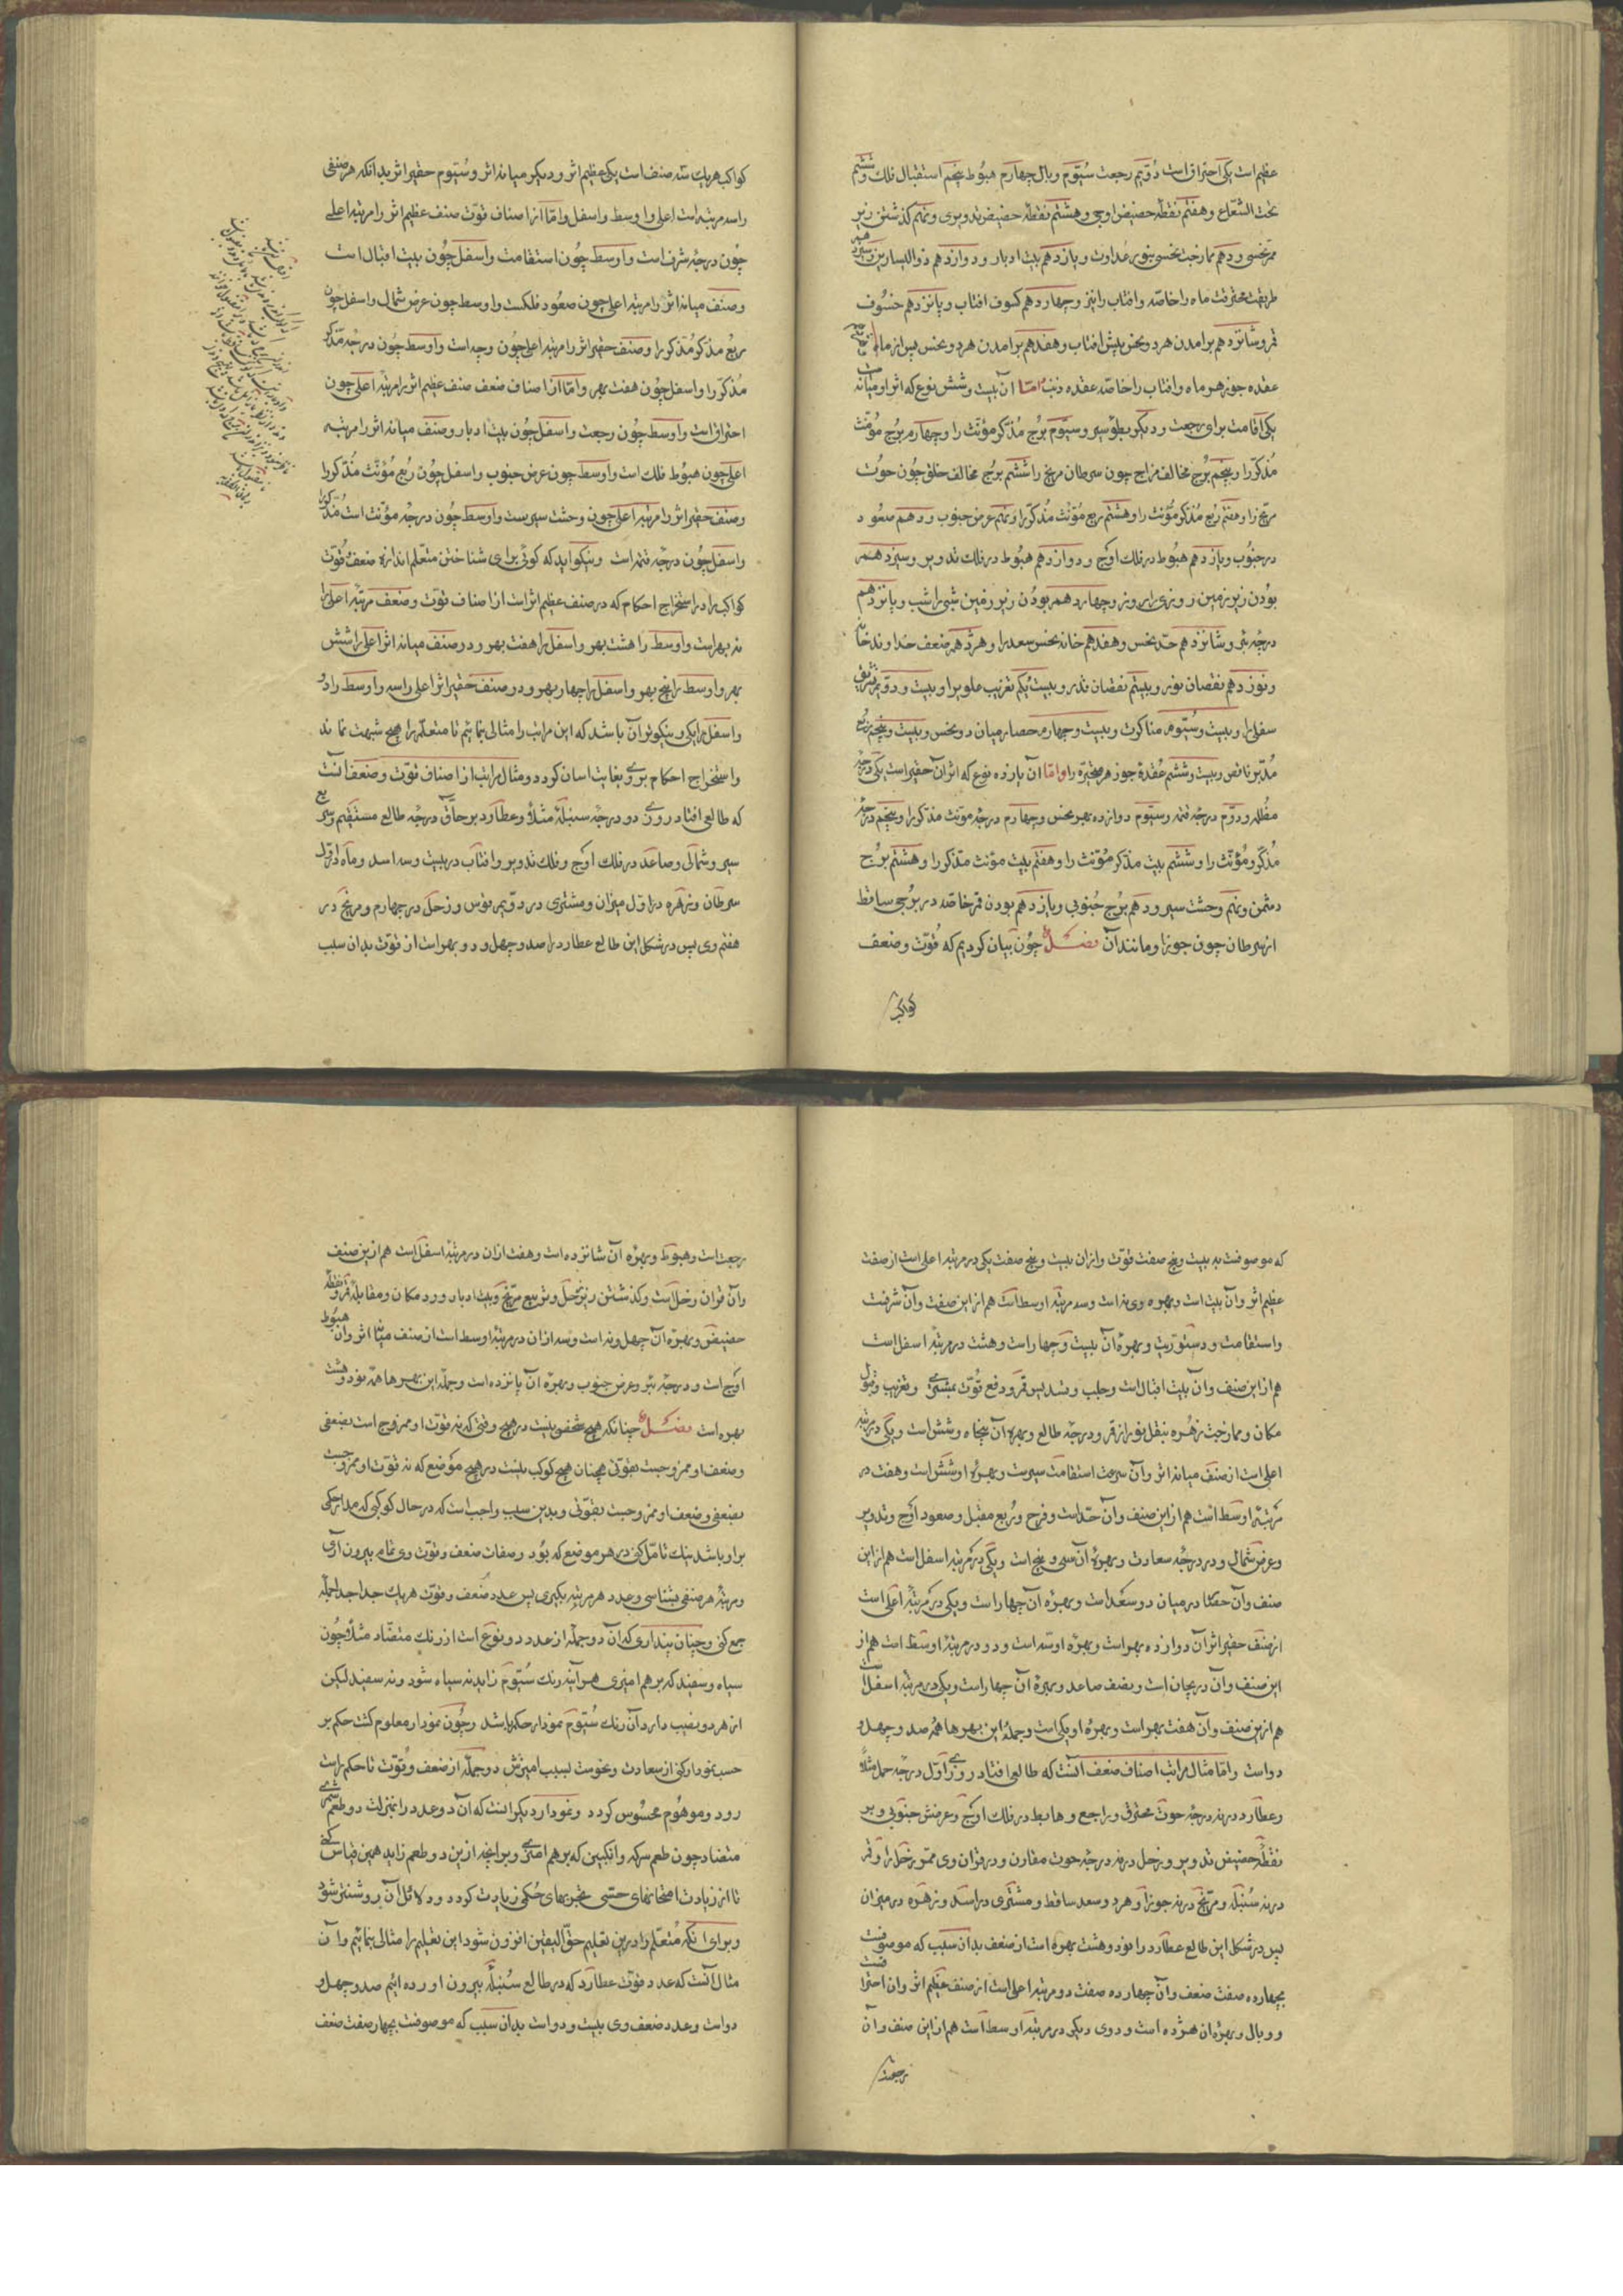 عظیم است یکی احتراق است دُوّیم رجعت سُیّوم وبال چهارم هبُوط پنجم استقبال فلک و ششم
تحت الشعاع و هفتم نقطهٔ حضیض اوجی و هشتم نقطهٔ حضیض تدویری و نهم گذشتن زیر
ممر نحسی و دهم ممازجت نحسی بنور عداوت و یازدهم بیت ادبار و دوازدهم ذوالیسارین و سیزدهم
طریقت محترقت ماه را خاصّه و افتاب را نیز و چهاردهم کسوف افتاب و پانزدهم خسُوف
قمر و شانزدهم برامدن هر دو نحس پیش افتاب و هفدهم برامدن هر دو نحس پس از ماه
عقده جوزهر ماه و افتاب را خاصّه عقده ذنب امّا آن بیست و شش نوع که اثر او میانه است
یکی اقامت برای رجعت و دیگر بطؤ سیر و سیّوم برُج مُذکّر مؤنّث را و چهارم برُج مؤنّث
مُذکّر را و پنجم برُج مخالف مزاج چون سرطان مریخ را ششم برُج مخالف خلق چُون حوُت
مریخ را و هفتم رُبع مُذکّر مؤنّث را و هشتم ربع مؤنّث مُذکّر را و نهم عرض جنوب و دهم صعُود
در جنُوب و یازدهم هبُوط در فلک اوج و دوازدهم هبُوط در فلک تدویر و سیزدهم
بوُدن زیر زمین روزی را بروز و چهاردهم بودُن زبر زمین شبی را شب و پانزدهم
درجهٔ بئر و شانزدهم حدّ نحس و هفدهم خانهٔ نحس سعد را و هژدهم ضعف خداوند خانه
و نوزدهم نقصان نور و بیستم نقصان قدر و بیست یکم تغریب علویرا و بیست و دوّیم تشریق
سفلی را و بیست و سُیّوم مناکرت و بیست و چهارم حصار میان دو نحس و بیست و پنجم ربُع
مُدبر ناقص و بیست و ششم عُقدهٔ جوزهر متحیّرة را و امّا آن یازده نوع که اثر آن حقیر است یکی درجهٔ
مظُلمه و دوّم درجهٔ قتمه و سیّوم دوازده بهر نحس و چهارم درجهٔ مؤنّث مذکّر را و پنجم درجهٔ
مُذکّر مؤنّث را و ششم بیت مذکّر مؤنّث را و هفتم بیت مؤنّث مذکّر را و هشتم برُج
دشمن و نهم وحشت سیر و دهم برُج جنُوبی و یازدهم بودن قمر خاصّه در برجی ساقط
از سرطان چون جوزا و مانند آن فصل چُون بیان کردیم که قُوّت و ضعف
کواکب
کواکب هر یک سه صنف است یکی عظیم اثر و دیگر میانه اثر و سُیّوم حقیر اثر بدانکه هر صنفی
را سه مرتبه است اعلی و اوسط و اسفل و امّا از اصناف قوّت صنف عظیم اثر را مرتبه اعلی
چُون درجهٔ شرف است و اوسط چُون استقامت و اسفل چُون بیت اقبال است
و صنف میانه اثر را مرتبه اعلی چون صعُود فلکست و اوسط چون عرض شمال و اسفل چون
ربُع مذکّر مُذکّر را و صنف حقیر اثر را مرتبه اعلی چُون وجه است و اوسط چُون درجهٔ مذکّر
مُذکّر را و اسفل چُون هفت بهر و امّا از اصناف ضعف صنف عظیم اثر را مرتبهٔ اعلی چون
احتراق است و اوسط چُون رجعت و اسفل چُون بیت ادبار و صنف میانه اثر را مرتبه
اعلی چون هبُوط فلک است و اوسط چون عرض جنوب و اسفل چُون رُبع مُؤنّث مُذکّر را
و صنف حقیر اثر را مرتبه اعلی چون وحشت سیرست و اوسط چُون درجهٔ مؤنّث است مُذکّر را
و اسفل چُون درجهٔ قتمه است و نیکو اید که گوئی برای شناختن متعلّم اندازه ضعف و قُوّت
کواکب را در استخراج احکام که در صنف عظیم اثر است از اصناف قوّت و ضعف مرتبهٔ اعلی را
نه بهر است و اوسط را هشت بهر و اسفل را هفت بهر و در صنف میانه اثر اعلی را شش
بهر و اوسط را پنج بهر و اسفل را چهار بهر و در صنف حقیر اثر اعلی را سه و اوسط را دو
و اسفل را یکی و نیکوتر آن باشد که این مراتب را مثالی بنمائیم تا متعلّم را هیچ شبهت نماند
و استخراج احکام بر وی بغایت اسان گردد و مثال مراتب از اصناف قوّت و ضعف آنست
که طالعی افتاد روزی دو درجهٔ سنبله مثلاً و عطارد بر حاقّ درجهٔ طالع مستقیم و سریع
سیر و شمالی و صاعد در فلک اوج و فلک تدویر و افتاب در بیست و سه اسد و ماه در اوّل
سرطان و زهره در اوّل میزان و مشتری در دوّیم قوس و زحل در چهارم و مریخ در
هفتم وی پس در شکل این طالع عطارد را صد و چهل و دو بهر است از قوّت بدان سبب
که موصوفست به بیست و پنج صفت قوّت و از ان بیست و پنج صفت یکی در مرتبه اعلی است از صفت
عظیم اثر و آن بیت است و بهره وی نه است و سه مرتبهٔ اوسط است هم از این صفت و آن شرفست
و استقامت و دستوریت و بهرهٔ آن بیست و چهار است و هشت در مرتبهٔ اسفل است
هم از این صنف و آن بیت اقبال است و حلب و تسدیس قمر و دفع قُوّت بمشتری و تغریب و قبول
مکان و ممازجت زهُره بنقل نور از قمر و درجهٔ طالع و بهرهٔ آن پنجاه و شش است و یکی در مرتبه
اعلی است از صنف میانه اثر و آن سرعت استقامت سیرست و بهرهٔ او شش است و هفت در
مرتبهٔ اوسط است هم از این صنف و آن حدّ است و فرح و رُبع مقبل و صعود اوج و تدویر
و عرض شمال و در درجهٔ سعادت و بهرهٔ آن سی و پنج است و یکی در مرتبهٔ اسفل است هم از این
صنف و آن حصار درمیان دو سعد است و بهرهٔ آن چهار است و یکی در مرتبهٔ اعلی است
از صنف حقیر اثر آن دوازده بهر است و بهرهٔ او سه است و دو در مرتبهٔ اوسط است هم از
این صنف و آن دریجان است و نصف صاعد و بهرهٔ آن چهار است و یکی در مرتبهٔ اسفل است
هم از ین صنف و آن هفت بهر است و بهرهٔ او یکی است و جملهٔ این بهرها همُه صد و چهل و
دو است و امّا مثال مراتب اصناف ضعف آنست که طالعی افتاد روزی اوّل درجهٔ حمل مثلاً
و عطارد در نه درجهٔ حوت محترق و راجع و هابط در فلک اوج و عرضش جنوبی و بر
نقطهٔ حضیض تدویر و زحل در نه درجهٔ حوت مقارن و در قران وی ممر زحل را و قمر
در نه سُنبله و مریخ در نه جوزا و هر دو سعد ساقط و مشتری در اسد و زهره در میزان
پس در شکل این طالع عطارد را نود و هشت بهره است از ضعف بدان سبب که موصوفست
بچهارده صفت ضعف و آن چهارده صفت دو مرتبه اعلی است از صنف عظیم اثر و ان احتراقست
و وبال و بهرهٔ ان هژده است و دوی دیگر در مرتبه اوسط است هم از این صنف و آن
رجعت
رجعت است و هبوط و بهرهٔ آن شانزده است و هفت ازان در مرتبهٔ اسفل است هم از ین صنف
وآن قران زحل است و گذشتن زیر زحل و تربیع مریخ و بیت ادبار و رد مکان و مقابلهٔ قمر و نقطهٔ
حضیض و بهرهٔ آن چهل و نه است و سه از ان در مرتبهٔ اوسط است از صنف میانه اثر و ان هبُوط
اوج است و درجهٔ بئر و عرض جنوب و بهرهٔ آن پانزده است و جملهٔ این بهرها همه نود و هشت
بهره است فصل چنانکه هیچ شخص نیست در هیچ وقتی که نه قوّت او ممزوج است بضعفی
و ضعف او ممزوجست بقوّتی همچنان هیچ کوکب نیست در هیچ موُضع که نه قوّت او ممزوجست
بضعفی و ضعف او ممزوجست بقوّتی و بدین سبب واجب است که در حال کوکبی که مدار حکمی
بر او باشد نیک تامّل کنی در هر موضع که بوُد و صفات ضعف و قوّت وی تمام بیرون آری
و مرتبهٔ هر صنفی بشناسی و عدد هر مرتبه بگیری پس عدد ضعف و قوّت هر یک جدا جدا جمله
جمع کنی و چنان پنداری که آن دو جمله از عدد دو نوع است از رنک متضّاد مثلاً چُون
سیاه و سفید که بر هم امیزی هر آینه رنک سُیّوم زاید نه سیاه شود و نه سفید لیکن
از هر دو نصیب دارد آن رنک سُیّوم نمودار حکم باشد و چُون نمودار معلوم گشت حکم بر
حسب نمودار کنی از سعادت و نحوست بسبب امیزش دو جمله از ضعف و قوّت تا حکم راست
رود و موهُوم محسُوس گردد و نمودار دیگر انست که آن دو عدد را بمنزلت دو طعم شمری
متضاد چون طعم سرکه و انگبین که بر هم امیزی و برانچه از ین دو طعم زاید همین قیاس کنی
تا از زیادت امتحانهای حسّی تجربهای حُکمی زیادت گردد و دلائل آن روشنتر شود
و برای انکه مُتعلّم را در ین تعلیم حقّ الیقین افزون شود این تعلیم را مثالی بنمائیم و آن
مثال آنست که عدد قوّت عطارد که در طالع سُنبله بیرون اورده ائیم صد و چهل و
دو است و عدد ضعف وی بیست و دو است بدان سبب که موصوفست بچهار صفت ضعف